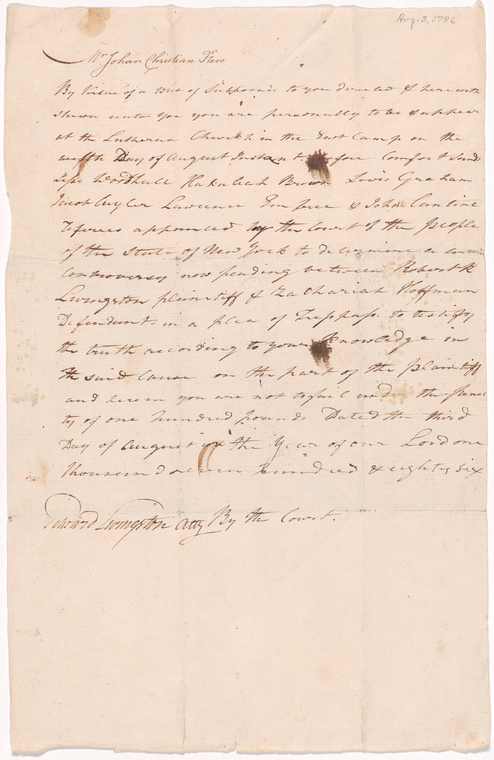 Aug. 3, 1786
Mr Johan Christian
By Virtue of a writ of Subpoena to you directed & herewith
shewn unto you you are personally to be & appear
at the Lutheran Church in the East Camp on the
twelfth Day of August Instant before Comfort Sands
Jesse Woodhull Hakaliah Brown Lewis Graham
Jacob Cuyler Lawrence Embree & John Cantine
Referees appointed by the Court of the People
of the State of New York to determine a
Controversy now pending between Robert R
Livingston plaintiff & Zachariah Hoffman
Defendant in a plea of Trespass to testify
the truth according to your Knowledge in
the said Cause on the part of the Plaintiff
and herein you are not to fail under the penal
ty of one hundred pounds Dated the third
Day of August in the Year of our Lord one
thousand seven Hundred & eighty six
Edward Livingston Atty By the Court.